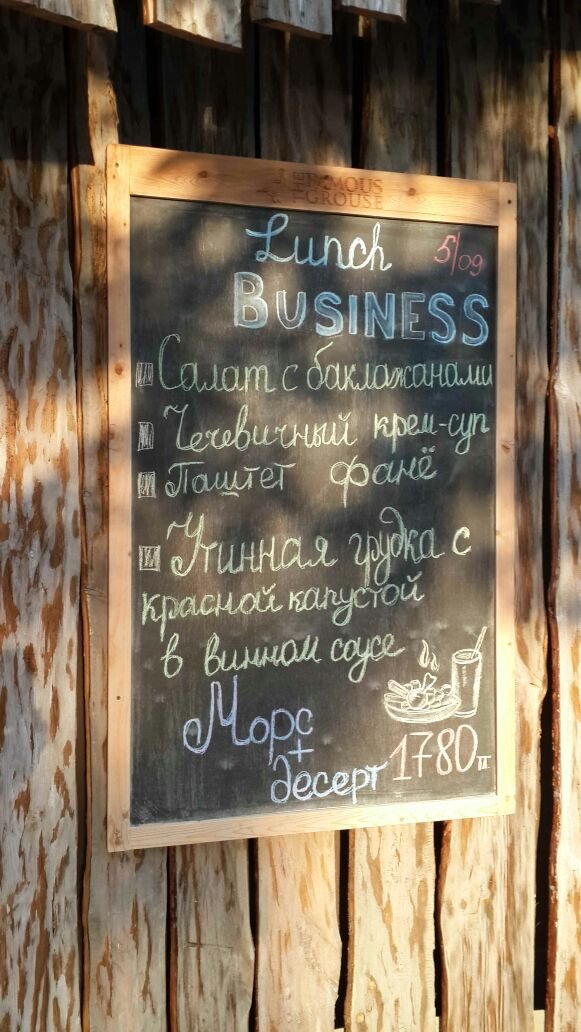 THE
FAMOUS
GROUSE
Lunch 5/09
BUSINESS
Салат с баклажанами
Чечевичный крем-суп
Паштет фанё
Утиная грудка с
красной капустой
в винном соусе
Морс
+
десерт 1780